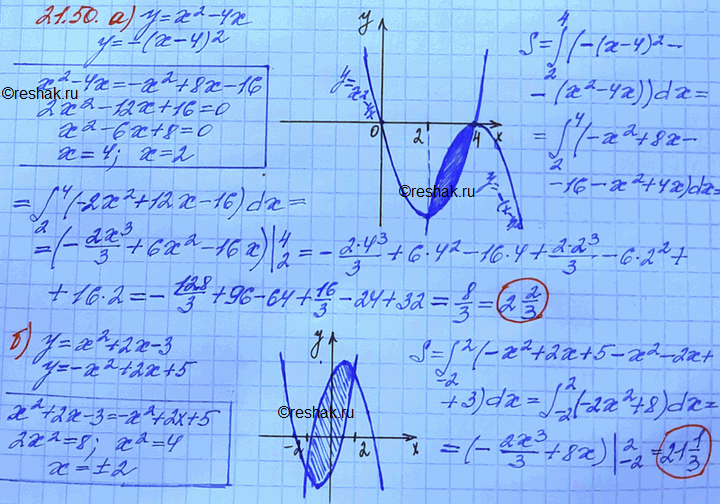 21.50. а) y=x²-4x
y=-(x-4)²
x²-4x=-x²+8x-16
2x²-12x+16=0
x²-6x+8=0
x=4; x=2
©reshak.ru
y
y=x²-4x
0 2 4 x
y=-(x-4)²
©reshak.ru
S=∫₂⁴(-(x-4)²-
-(x²-4x))dx=
=∫₂⁴(-x²+8x-
-16-x²+4x)dx
=∫₂⁴(-2x²+12x-16)dx=
=(-2x³/3+6x²-16x)|₂⁴=-2·4³/3+6·4²-16·4+2·2³/3-6·2²+
+16·2=-128/3+96-64+16/3-24+32=8/3=2 2/3
б) y=x²+2x-3
y=-x²+2x+5
x²+2x-3=-x²+2x+5
2x²=8; x²=4
x=±2
y
©reshak.ru
-2 2 x
S=∫₋₂²(-x²+2x+5-x²-2x+
+3)dx=∫₋₂²(-2x²+8)dx=
=(-2x³/3+8x)|₋₂²=21 1/3
©reshak.ru